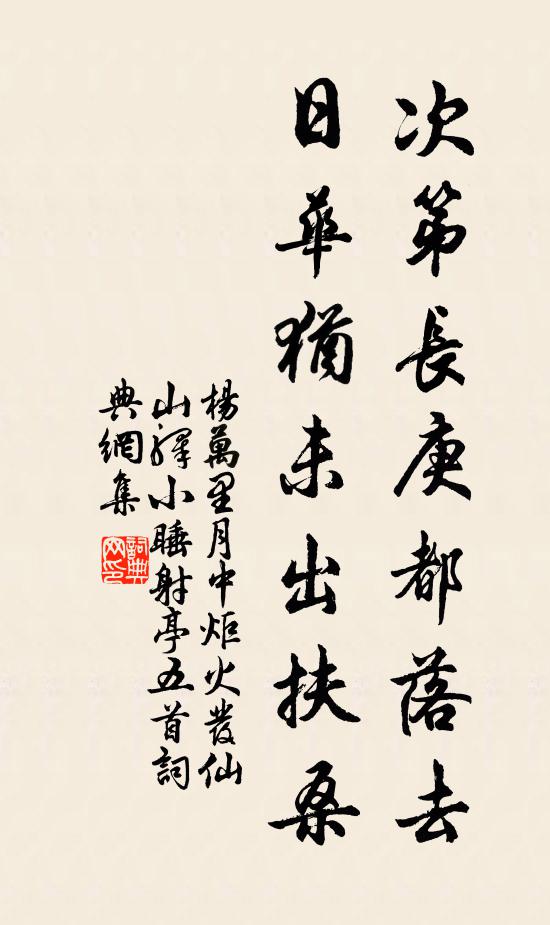 次第長庚都落去
日華猶未出扶桑
楊萬里月中炬火發仙
山驛小睡射亭五首詞
典網集
詞典
网印